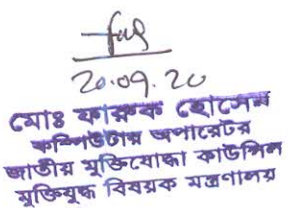 20.09.20
মোঃ ফারুক হোসেন
কম্পিউটার অপারেটর
জাতীয় মুক্তিযোদ্ধা কাউন্সিল
মুক্তিযুদ্ধ বিষয়ক মন্ত্রণালয়